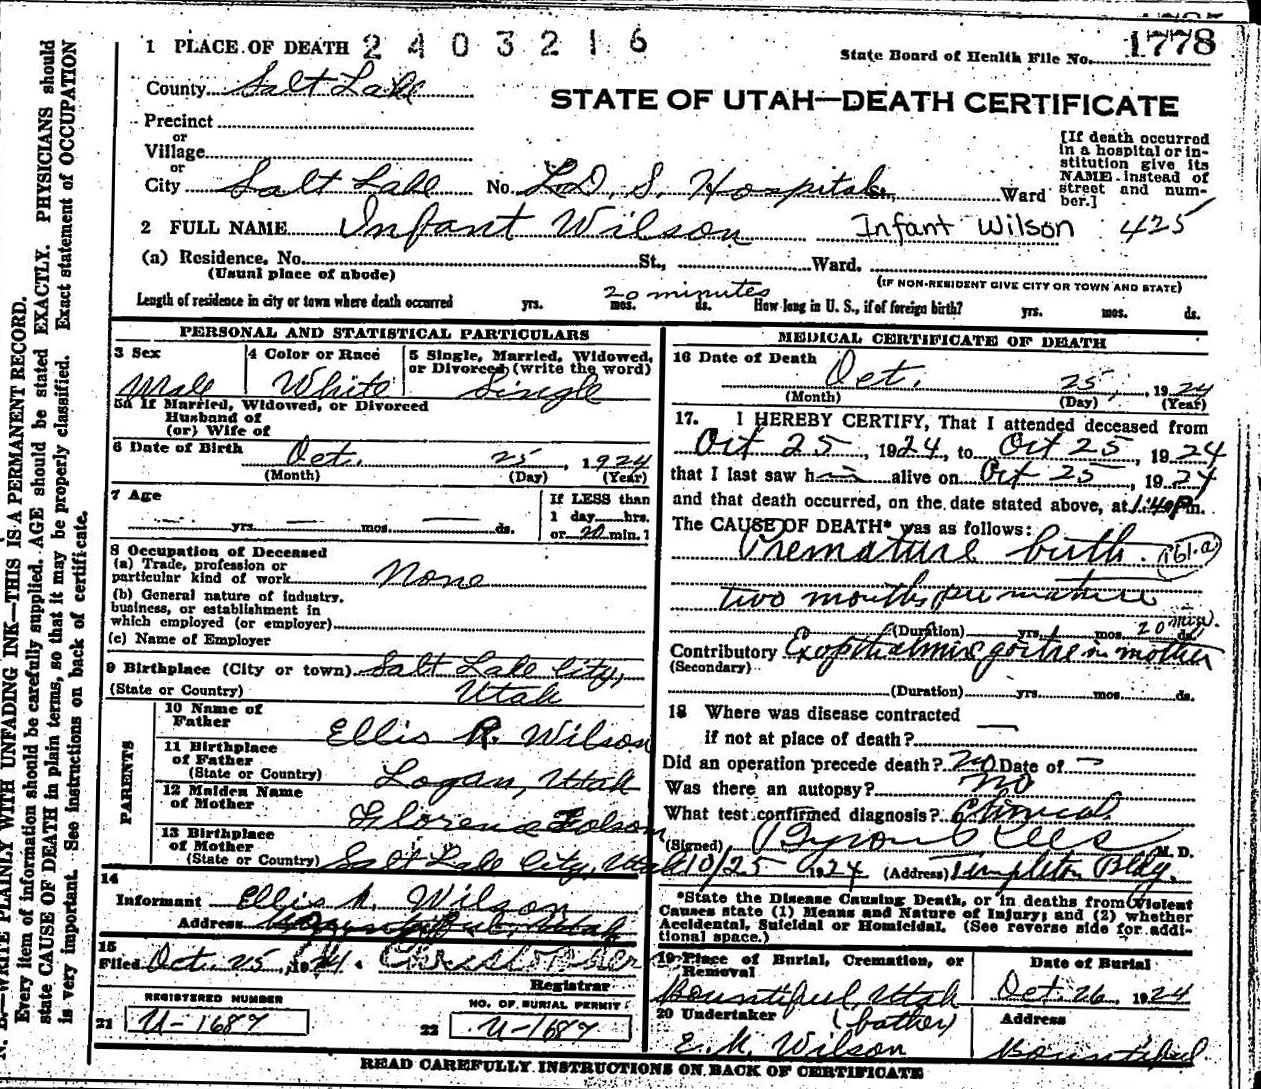 1 PLACE OF DEATH 2403216
State Board of Health File No. 1778
County Salt Lake
STATE OF UTAH—DEATH CERTIFICATE
Precinct
or
Village
or
City Salt Lake No. L.D.S. Hospital St., Ward
[If death occurred
in a hospital or in-
stitution give its
NAME instead of
street and num-
ber.]
2 FULL NAME Infant Wilson Infant Wilson 425
(a) Residence. No. St., Ward.
(Usual place of abode)
(IF NON-RESIDENT GIVE CITY OR TOWN AND STATE)
Length of residence in city or town where death occurred yrs. mos. ds. 20 minutes How long in U. S., if of foreign birth? yrs. mos. ds.
PERSONAL AND STATISTICAL PARTICULARS
3 Sex Male
4 Color or Race White
5 Single, Married, Widowed,
or Divorced (write the word)
Single
5a If Married, Widowed, or Divorced
Husband of
(or) Wife of
6 Date of Birth Oct. 25, 1924
(Month) (Day) (Year)
7 Age
yrs. mos. ds.
If LESS than
1 day hrs.
or 20 min.]
8 Occupation of Deceased
(a) Trade, profession or
particular kind of work None
(b) General nature of industry,
business, or establishment in
which employed (or employer)
(c) Name of Employer
9 Birthplace (City or town) Salt Lake City,
(State or Country) Utah
PARENTS
10 Name of
Father Ellis R. Wilson
11 Birthplace
of Father
(State or Country) Logan, Utah
12 Maiden Name
of Mother Florence Folsom
13 Birthplace
of Mother
(State or Country) Salt Lake City, Utah
14
Informant Ellis R. Wilson
Address Bountiful, Utah
15
Filed Oct. 25, 1924.
Registrar
REGISTERED NUMBER
21 U-1687
NO. OF BURIAL PERMIT
22 U-1687
MEDICAL CERTIFICATE OF DEATH
16 Date of Death
Oct. 25, 1924
(Month) (Day) (Year)
17. I HEREBY CERTIFY, That I attended deceased from
Oct 25, 1924, to Oct 25, 1924
that I last saw h alive on Oct 25, 1924
and that death occurred, on the date stated above, at 1:40 P m.
The CAUSE OF DEATH* was as follows:
Premature birth. 161.a
two months premature
(Duration) yrs. mos. ds. 20 min.
Contributory Exophthalmic goitre in mother
(Secondary)
(Duration) yrs. mos. ds.
18 Where was disease contracted
if not at place of death?
Did an operation precede death? no Date of
Was there an autopsy? no
What test confirmed diagnosis? Clinical
(Signed) M. D.
10/25 1924 (Address) Templeton Bldg.
*State the Disease Causing Death, or in deaths from Violent
Causes state (1) Means and Nature of Injury; and (2) whether
Accidental, Suicidal or Homicidal. (See reverse side for addi-
tional space.)
19 Place of Burial, Cremation, or
Removal
Bountiful, Utah
Date of Burial
Oct. 26, 1924
20 Undertaker (father)
E. R. Wilson
Address
Bountiful
READ CAREFULLY INSTRUCTIONS ON BACK OF CERTIFICATE
N. B.—WRITE PLAINLY WITH UNFADING INK—THIS IS A PERMANENT RECORD.
Every item of information should be carefully supplied. AGE should be stated EXACTLY. PHYSICIANS should
state CAUSE OF DEATH in plain terms, so that it may be properly classified. Exact statement of OCCUPATION
is very important. See instructions on back of certificate.